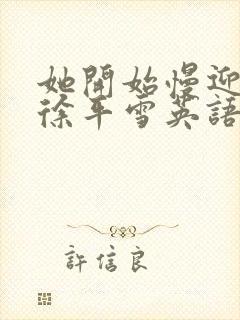 她開始慢迎
徐平雪英語
許信良